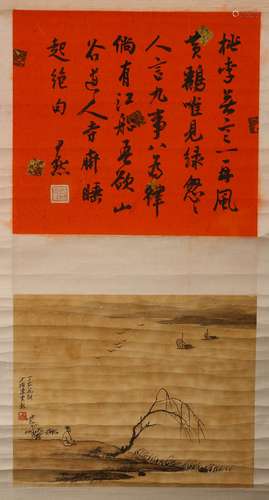 桃李無言一再風
黃鸝唯見綠怱〻
人言九事八為律
倘有江船吾欲山
谷道人寺齋睡
起絕句
尹默